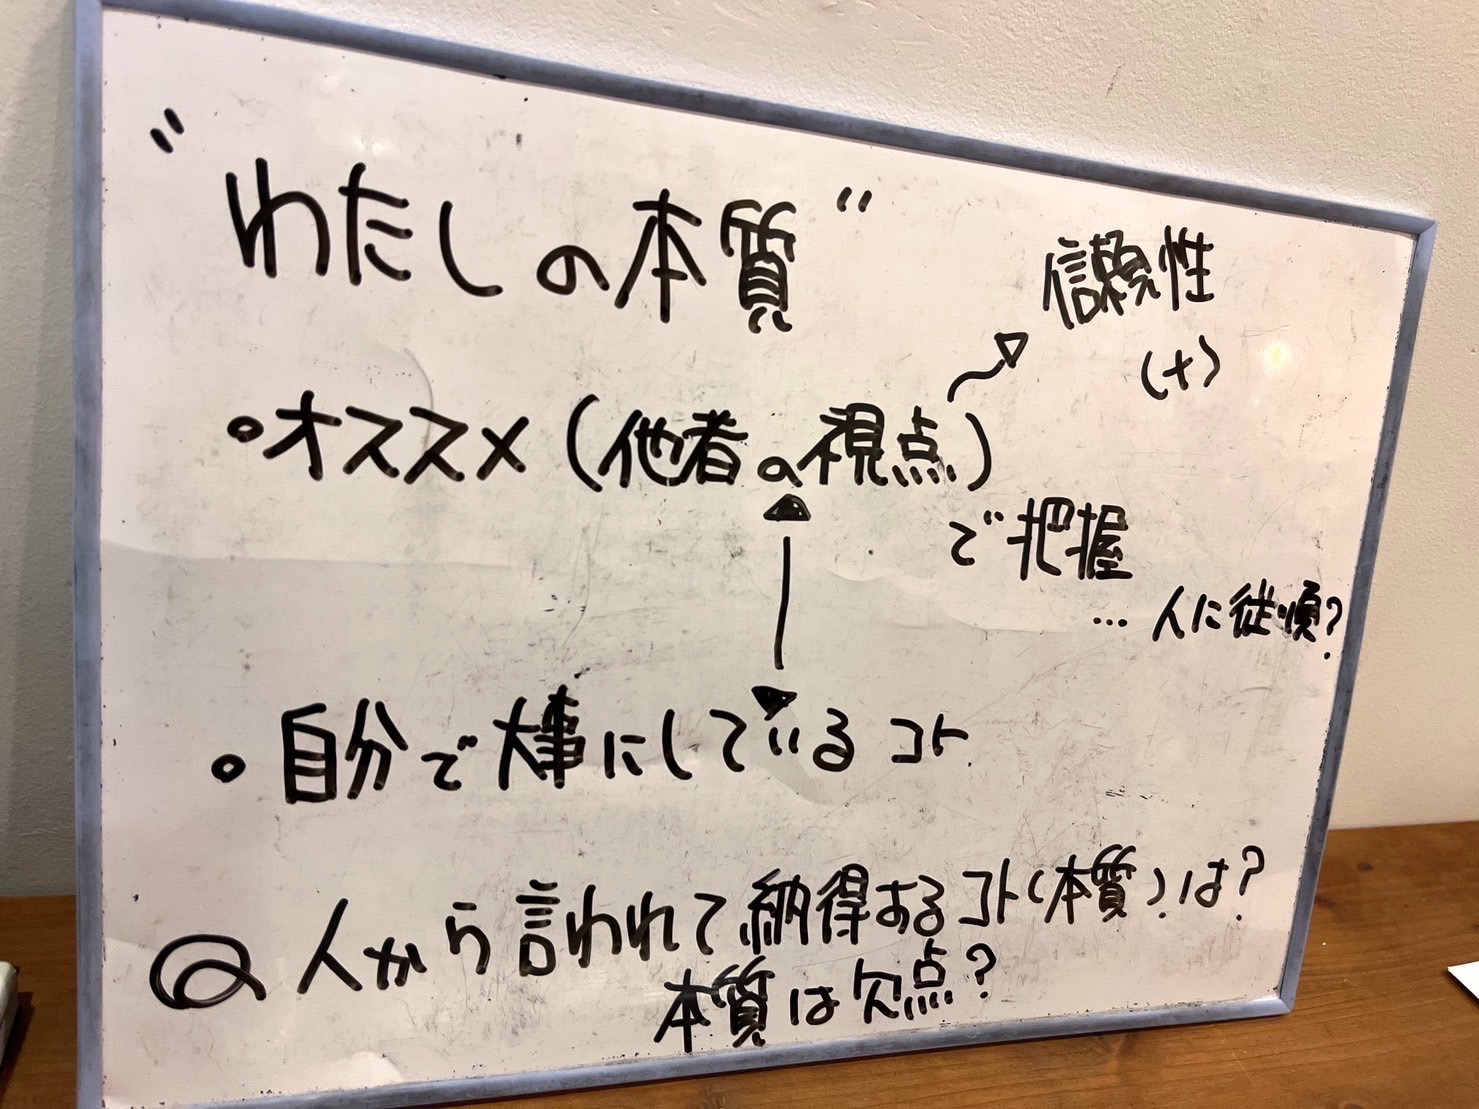 "わたしの本質"
信頼性
(+)
・オススメ(他者の視点)
で把握
… 人に従順?
・自分で大事にしているコト
Q 人から言われて納得あるコト(本質)は?
本質は欠点?